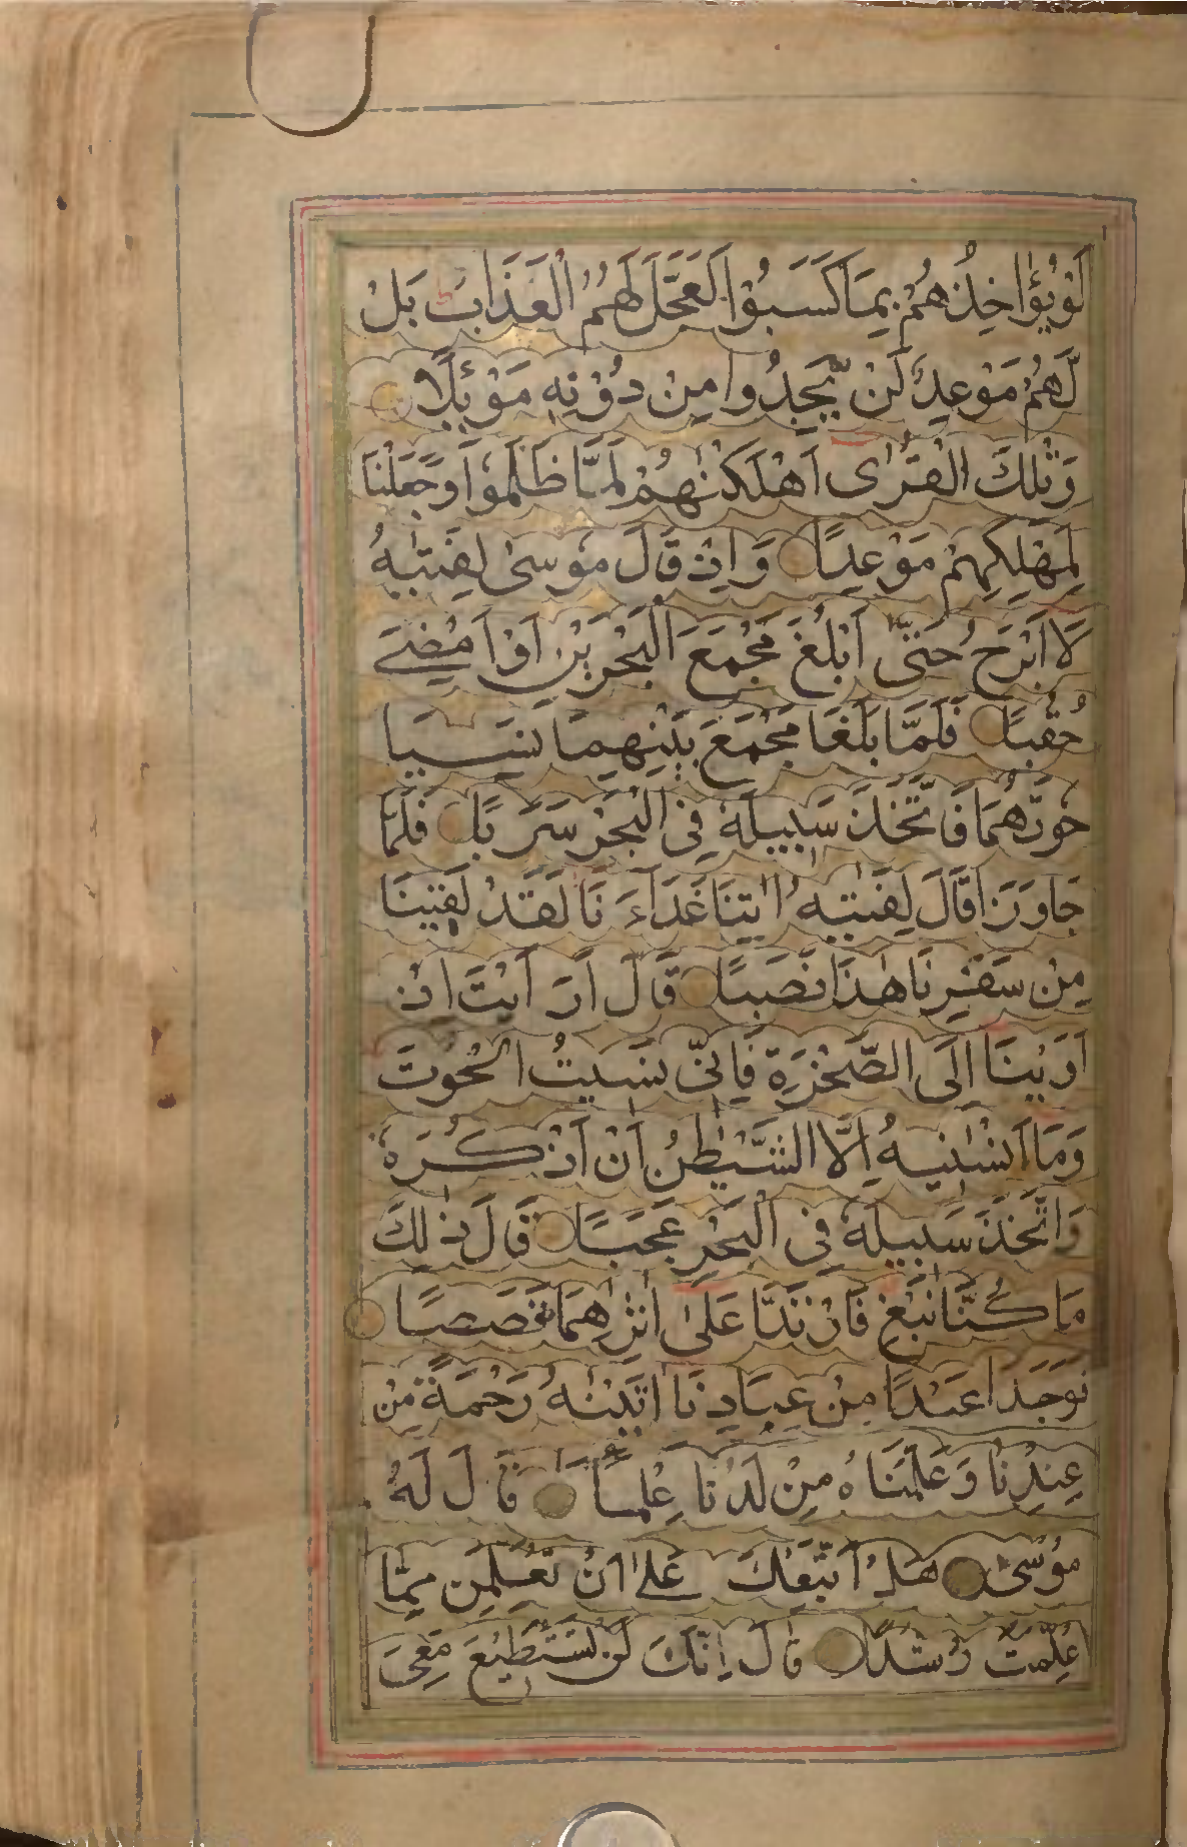 لَوْ يُؤَاخِذُهُمْ بِمَا كَسَبُوْا لَعَجَّلَ لَهُمُ الْعَذَابَ بَلْ
لَّهُمْ مَوْعِدٌ لَنْ يَّجِدُوا مِنْ دُوْنِهٖ مَوْئِلًا
وَتِلْكَ الْقُرٰى اَهْلَكْنٰهُمْ لَمَّا ظَلَمُوْا وَجَعَلْنَا
لِمَهْلِكِهِمْ مَوْعِدًا وَاِذْ قَالَ مُوْسٰى لِفَتٰىهُ
لَا اَبْرَحُ حَتّٰى اَبْلُغَ مَجْمَعَ الْبَحْرَيْنِ اَوْ اَمْضِيَ
حُقُبًا فَلَمَّا بَلَغَا مَجْمَعَ بَيْنِهِمَا نَسِيَا
حُوْتَهُمَا فَاتَّخَذَ سَبِيْلَهٗ فِى الْبَحْرِ سَرَبًا فَلَمَّا
جَاوَزَا قَالَ لِفَتٰىهُ اٰتِنَا غَدَآءَنَا لَقَدْ لَقِيْنَا
مِنْ سَفَرِنَا هٰذَا نَصَبًا قَالَ اَرَاَيْتَ اِذْ
اَوَيْنَا اِلَى الصَّخْرَةِ فَاِنِّى نَسِيْتُ الْحُوْتَ
وَمَا اَنْسٰىنِيْهُ اِلَّا الشَّيْطٰنُ اَنْ اَذْكُرَهٗ
وَاتَّخَذَ سَبِيْلَهٗ فِى الْبَحْرِ عَجَبًا قَالَ ذٰلِكَ
مَا كُنَّا نَبْغِ فَارْتَدَّا عَلٰى اٰثَارِهِمَا قَصَصًا
فَوَجَدَا عَبْدًا مِنْ عِبَادِنَا اٰتَيْنٰهُ رَحْمَةً مِنْ
عِنْدِنَا وَعَلَّمْنَاهُ مِنْ لَدُنَّا عِلْمًا قَالَ لَهٗ
مُوْسٰى هَلْ اَتَّبِعُكَ عَلٰى اَنْ تُعَلِّمَنِ مِمَّا
عُلِّمْتَ رُشْدًا قَالَ اِنَّكَ لَنْ تَسْتَطِيْعَ مَعِىَ